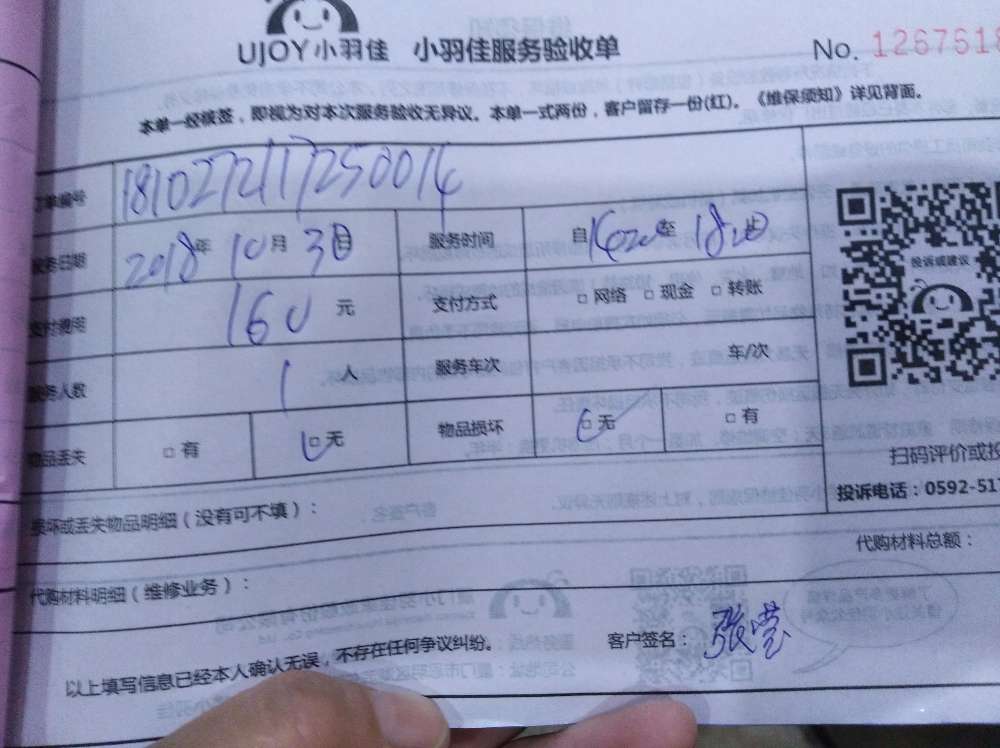 UJOY小羽佳 小羽佳服务验收单 No. 1267618
本单一经核签，即视为对本次服务验收无异议。本单一式两份，客户留存一份(红)。《维保须知》详见背面。
订单编号 1810272117250014
服务日期 2018年 10月 3日 服务时间 自 至
支付费用 160 元 支付方式 □ 网络 □ 现金 □ 转账
服务人数 1 人 服务车次 车/次
物品丢失 □ 有 □ 无 物品损坏 □ 无 □ 有
投诉或建议
扫码评价或投
投诉电话：0592-517
损坏或丢失物品明细（没有可不填）：
代购材料明细（维修业务）： 代购材料总额：
以上填写信息已经本人确认无误，不存在任何争议纠纷。 客户签名：张莹